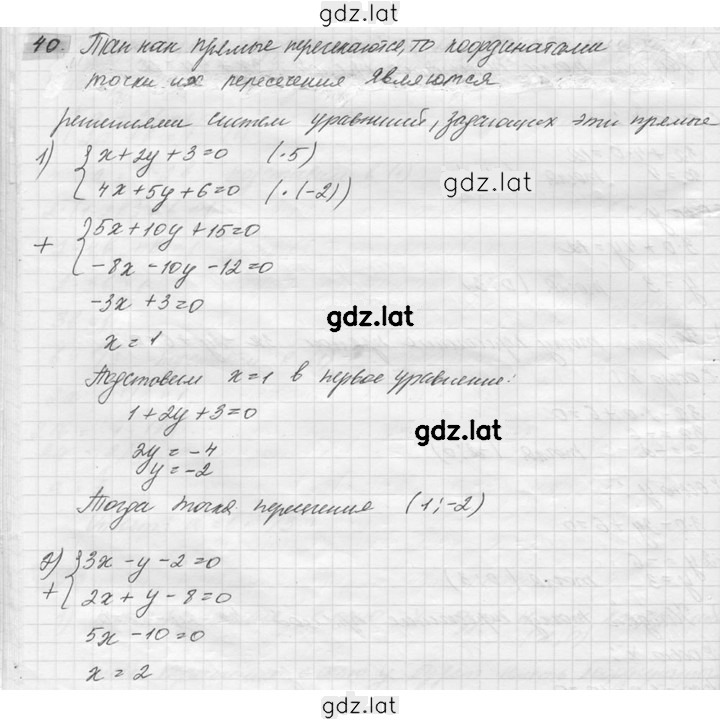 gdz.lat
40. Так как прямые пересекаются, то координатами
точки их пересечения являются
решениями систем уравнений, задающих эти прямые
1) { x + 2y + 3 = 0 (·5)
4x + 5y + 6 = 0 (·(-2))
gdz.lat
+ { 5x + 10y + 15 = 0
-8x - 10y - 12 = 0
-3x + 3 = 0
gdz.lat
x = 1
Подставим x = 1 в первое уравнение:
1 + 2y + 3 = 0
gdz.lat
2y = -4
y = -2
Тогда точка пересечения (1; -2)
2) { 3x - y - 2 = 0
+ 2x + y - 8 = 0
5x - 10 = 0
x = 2
gdz.lat